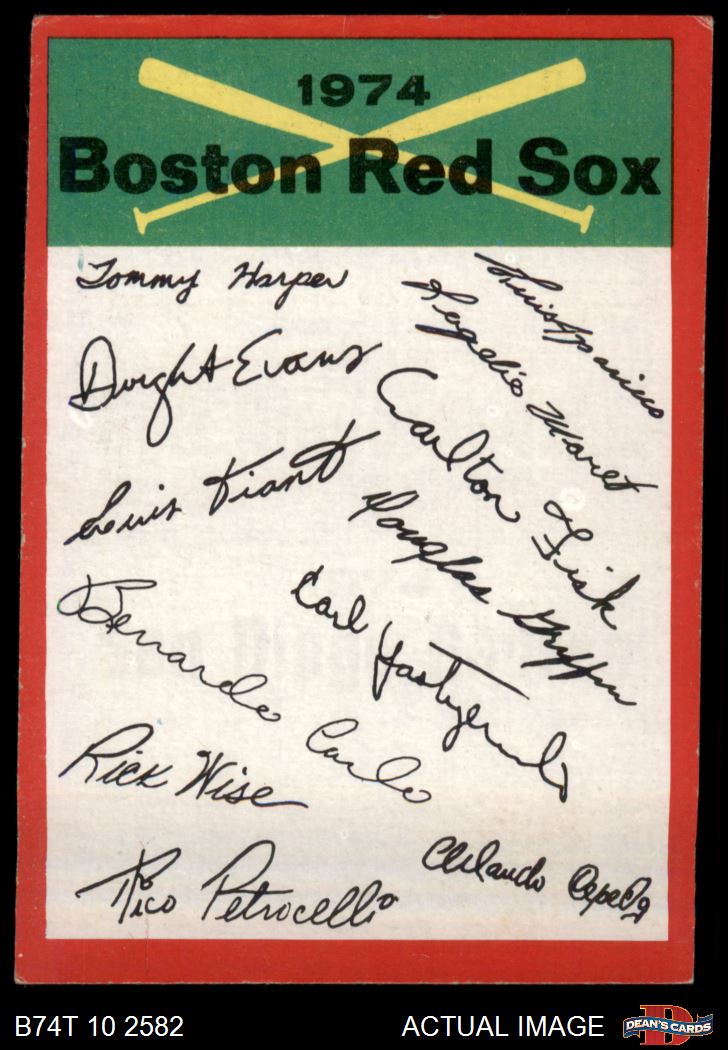 1974
Boston Red Sox
Tommy Harper
Luis Aparicio
Rogelio Moret
Dwight Evans
Carlton Fisk
Luis Tiant
Douglas Griffin
Bernardo Carbo
Carl Yastrzemski
Rick Wise
Orlando Cepeda
Rico Petrocelli
B74T 10 2582
ACTUAL IMAGE
D
DEAN'S CARDS